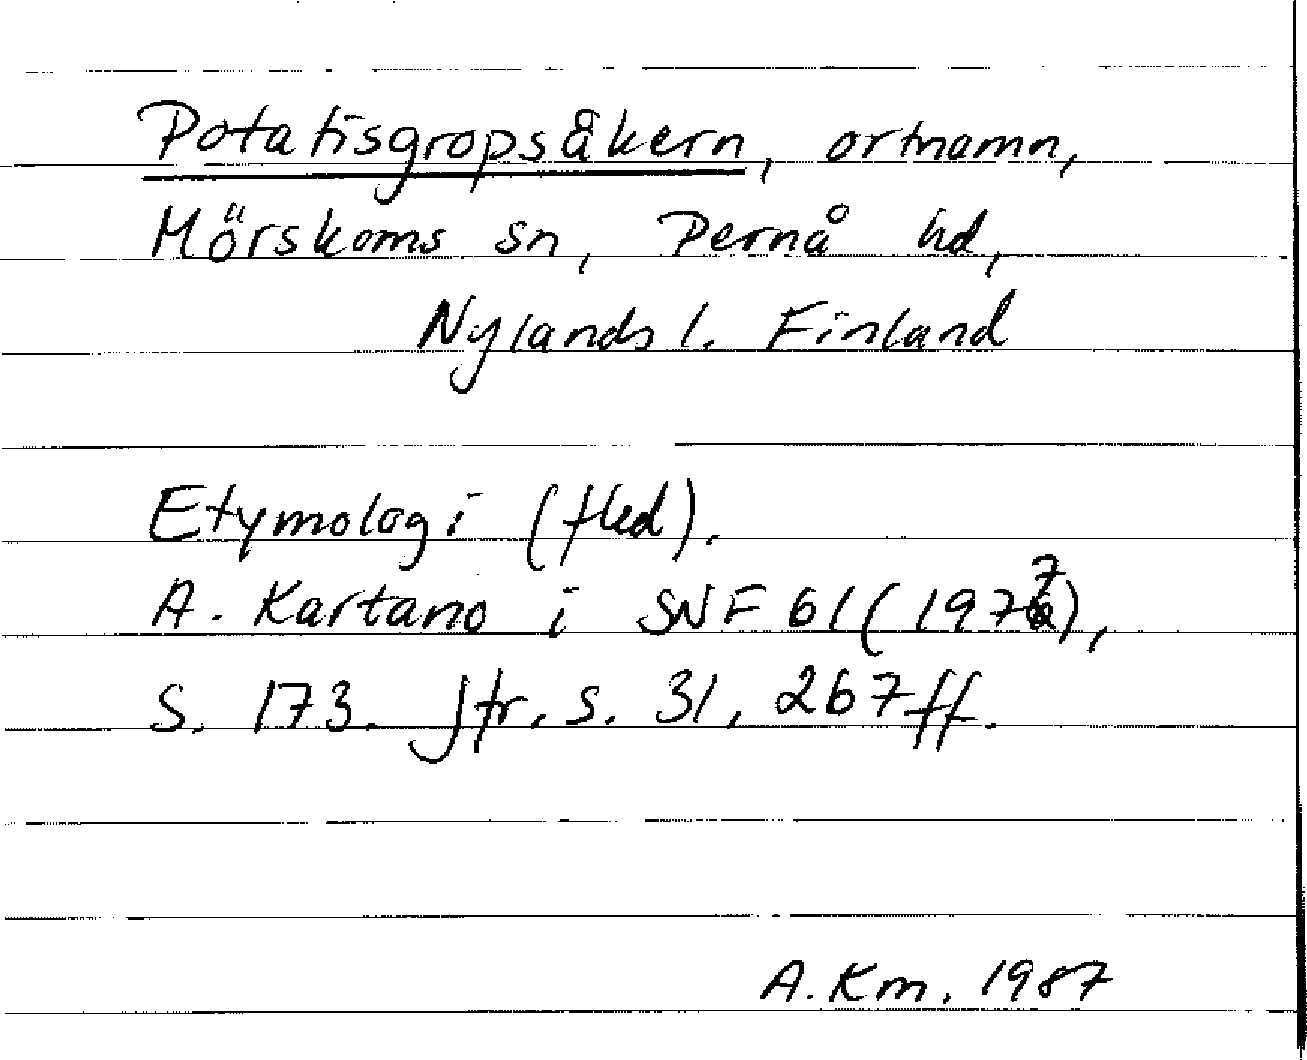 Potatisgropsåkern, ortnamn,
Mörskoms sn, Pernå hd,
Nylands l. Finland
Etymologi (fled).
A. Kartano i SNF 61 (1977),
S. 173. Jfr. s. 31, 267 ff.
A. Km. 1987